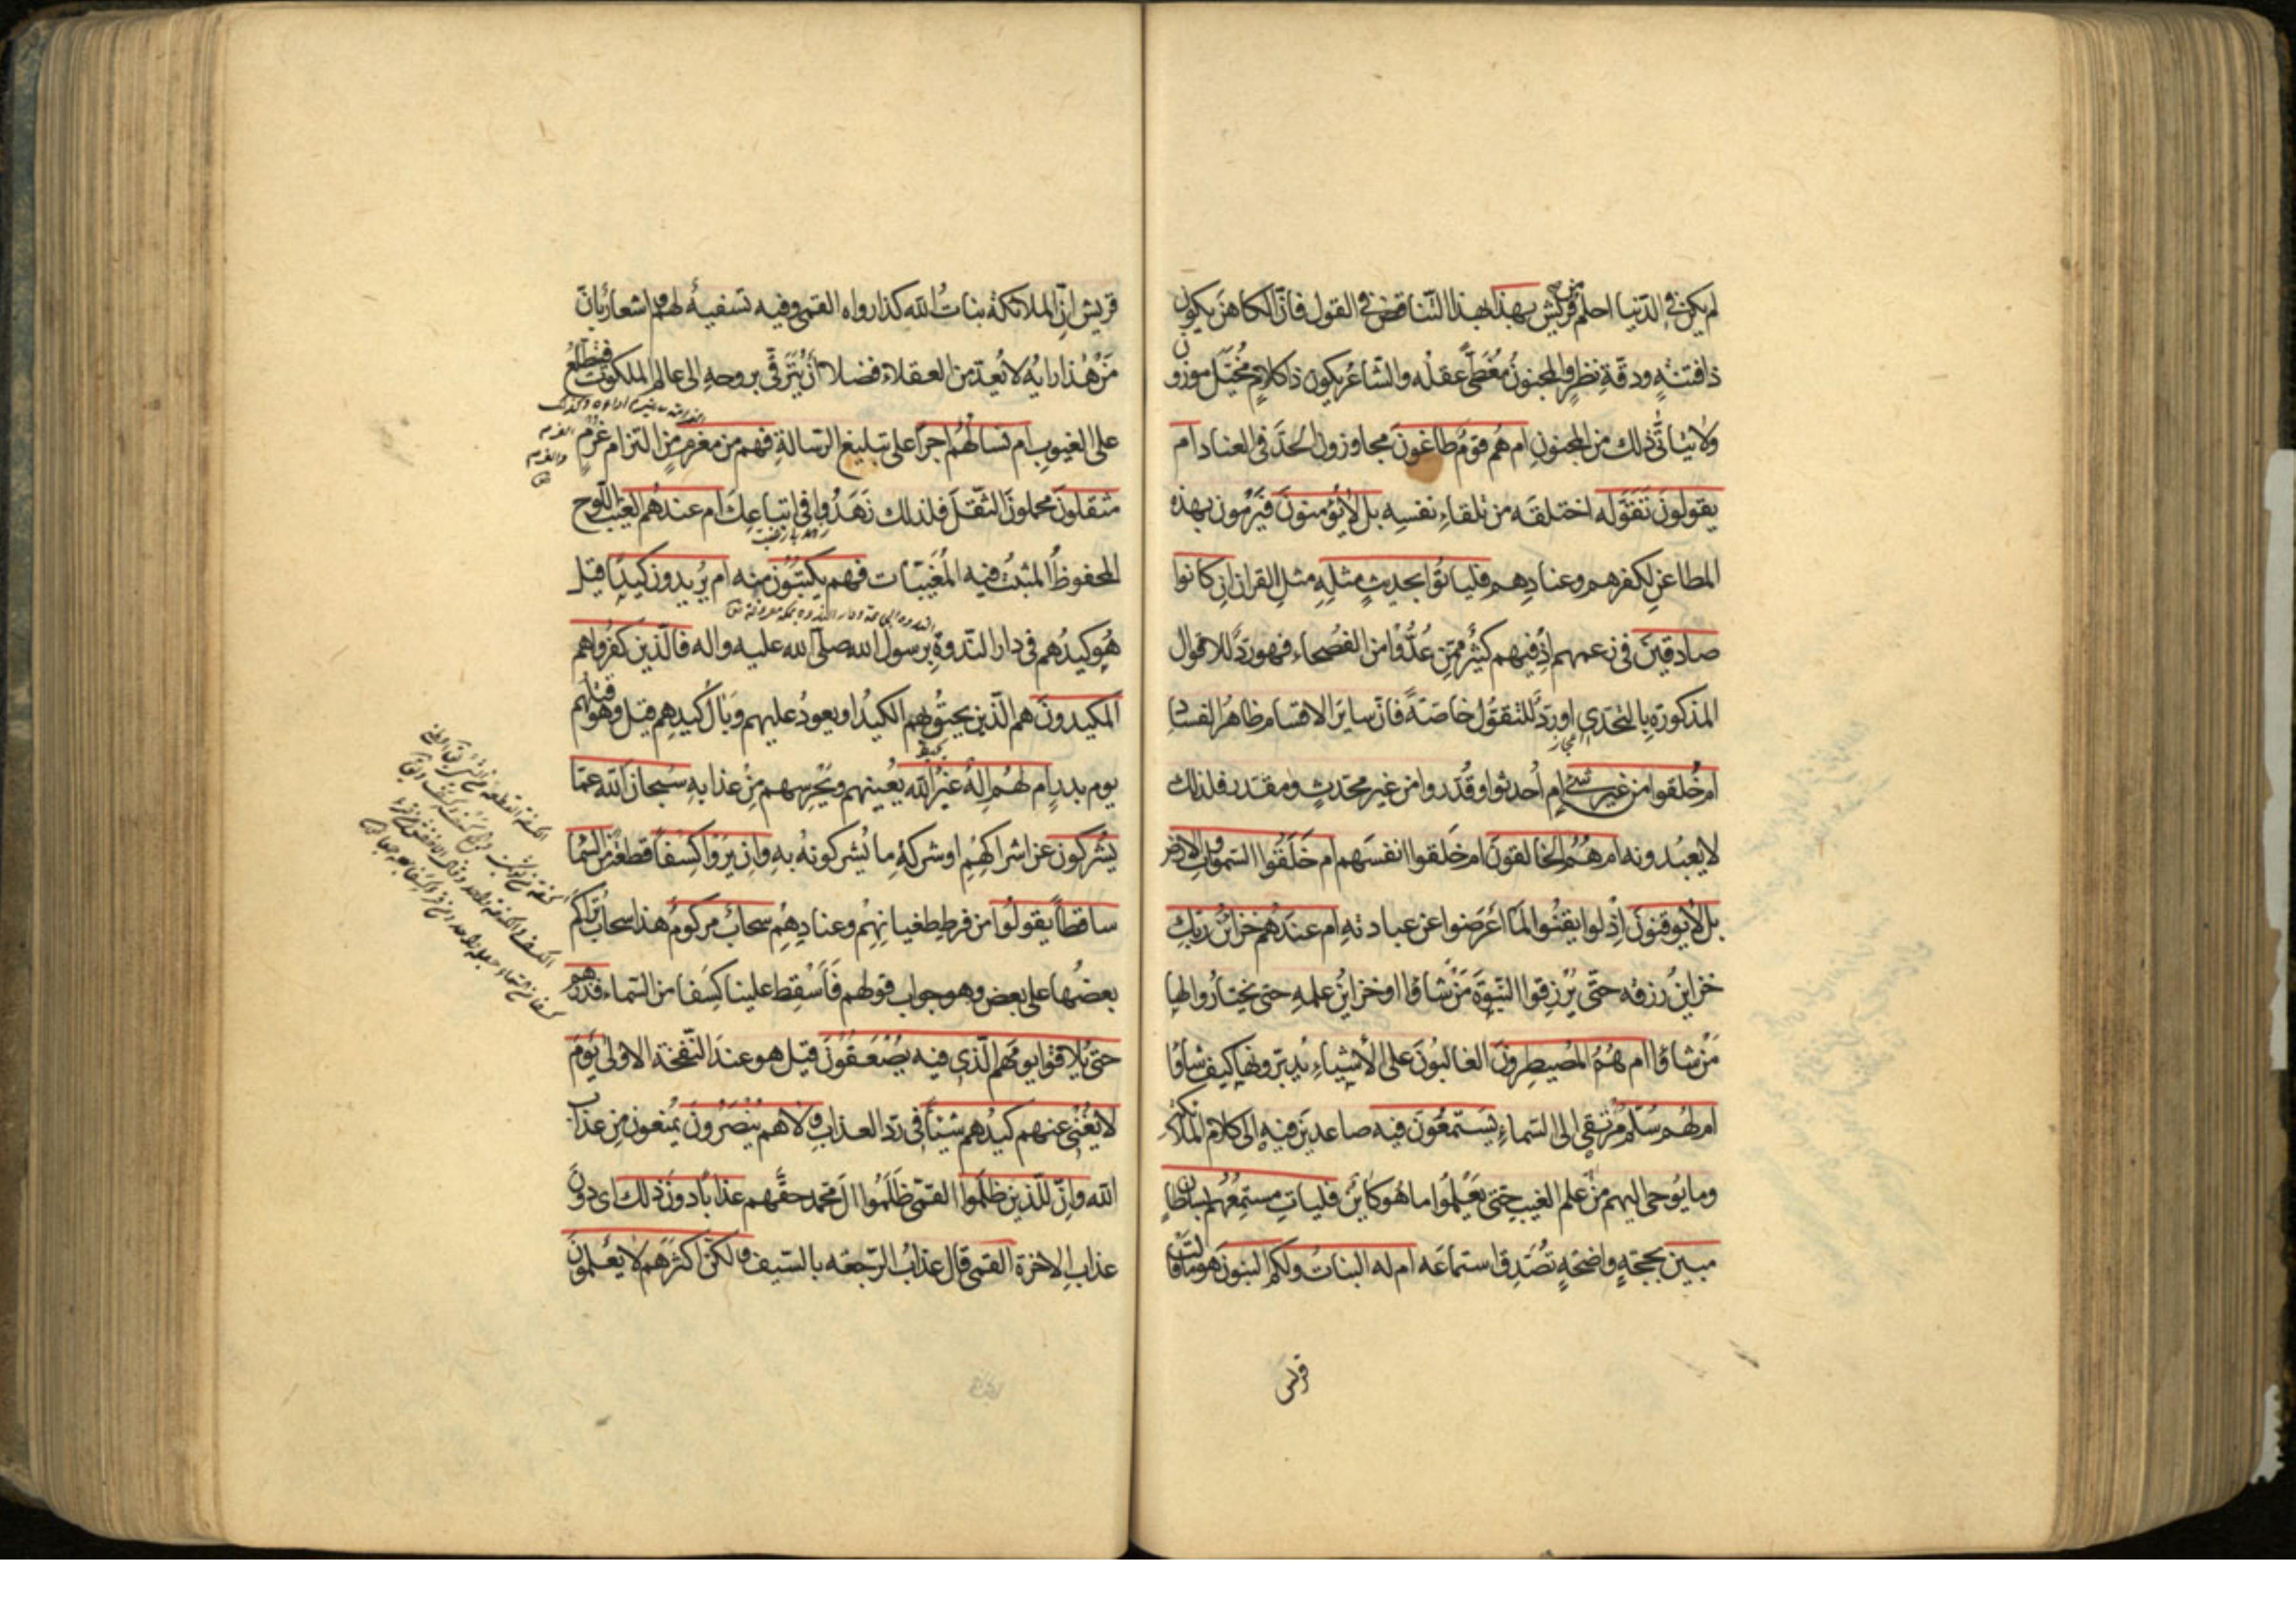 لم يكن في الدّنيا احلم من قريش بهذا بهذا التّناقض في القول فانّ الكاهن يكون
ذا فتنةٍ ودقّةِ نظرٍ والمجنونُ مُغطّىً عقلُه والشّاعرُ يكون ذا كلامٍ مُخيّلٍ موزون
ولا يتأتّى ذلك من المجنونِ ام هُم قومٌ طاغونَ مجاوزون الحدَّ في العناد ام
يقولونَ تَقَوَّله اختلقَه من تلقاءِ نفسِه بل لا يُؤمنونَ فيَرْمون بهذه
المطاعنِ لكفرهم وعنادِهم فليأتوا بحديثٍ مثلِهِ مثلِ القرآن ان كانوا
صادقينَ في زعمهم اذ فيهم كثيرٌ ممّن عُدُّوا من الفُصحاء فهو ردٌّ للاقوال
المذكورةِ بالتّحدّي او ردٌّ للتّقوّل خاصّةً فانّ سايرَ الاقسام ظاهرُ الفسادِ
ام خُلقوا من غير شيءٍ ام أُحدثوا وقُدّروا من غيرِ مُحدثٍ ومقدّرٍ فلذلك
لا يعبُدونه ام هُمُ الخالقونَ ام خَلَقوا انفسَهم ام خَلَقُوا السّموات والارض
بل لا يُوقنونَ اذ لو ايقنُوا لمّا اَعْرَضوا عن عبادتهِ ام عندَهُم خزائنُ ربّكِ
خزاينُ رزقه حتّى يرزقوا النّبوّةَ مَنْ شاؤا او خزاينُ علمهِ حتى يختارُوا لها
مَنْ شاؤا ام هُمُ المُصيطِرونَ الغالبُونَ على الأشياءِ يُدبّرونها كيف شاؤا
ام لهُم سُلّمٌ مُرتقىً الى السّماءِ يَستَمعُونَ فيه صاعدينَ فيهِ الى كلام الملائكة
وما يُوحى اليهم من علم الغيبِ حتى يَعْلَمُوا ما هو كاينٌ فليأتِ مستمِعُهُم بسلطانٍ
مبينٍ بحجّةٍ واضحةٍ تُصدّق استماعَه ام له البناتُ ولكم البنونَ هو ما قالت
قريش
قريش انّ الملائكةُ بناتُ الله كذا رواه القمي وفيه تسفيهٌ لهم واشعارٌ بانّ
مَنْ هٰذا رايُه لا يُعدّ من العقلاء فضلا اَنْ يَتَرقّى بروحهِ الى عالم الملكوت فيتطلّع
على الغيوبِ ام تسألهُم اجراً على تبليغ الرّسالةِ فهم من مغرمٍ من التزام غُرْمٍ
مثقلونَ محملونَ الثّقلَ فلذلك زَهَدُوا في اتباعِكَ ام عندهُم الغيبُ اللّوح
المحفوظُ المثبتُ فيه المُغَيّبات فهم يكتبُونَ منه ام يُريدون كيدًا قيل
هُو كيدُهم في دار النّدوةِ برسول الله صلّى الله عليه واله فالّذين كفروا هم
المكيدونَ هم الّذين يحيقُ بهم الكيدُ او يعودُ عليهم وَبالُ كيدِهِم قيل وهو قتلهم
يومَ بدرٍ ام لهُم الهٌ غيرُ الله يُعينهم ويَحْرسهم مِنْ عذابهِ سُبحان الله عمّا
يُشركون عن اشراكهِم او شركةِ ما يُشركونهُ بهِ وانْ يَروا كِسفاً قطعةً من السّما
ساقطاً يقولُوا من فرط طغيانِهِم وعنادِهِم سحابٌ مركومٌ هذا سحابٌ تراكم
بعضُها على بعض وهو جواب قولهم فَأسْقِط علينا كِسَفًا من السّماء فذرهم
حتى يُلاقوا يومَهُم الّذي فيه يُصْعَقُونَ قيل هو عندَ النّفخة الاولى يَومَ
لا يُغنى عنهم كيدُهم شيئاً في ردّ العذابِ ولا هم يُنصَرُونَ يُمنعون مِن عذاب
الله وانّ للّذين ظلموا القمي ظَلَمُوا الَ محمد حقَّهم عذاباً دونَ ذلك اي دون
عذاب الاخرة القمي قال عذابُ الرّجعه بالسّيف ولكنّ اكثرهم لا يعلمونَ